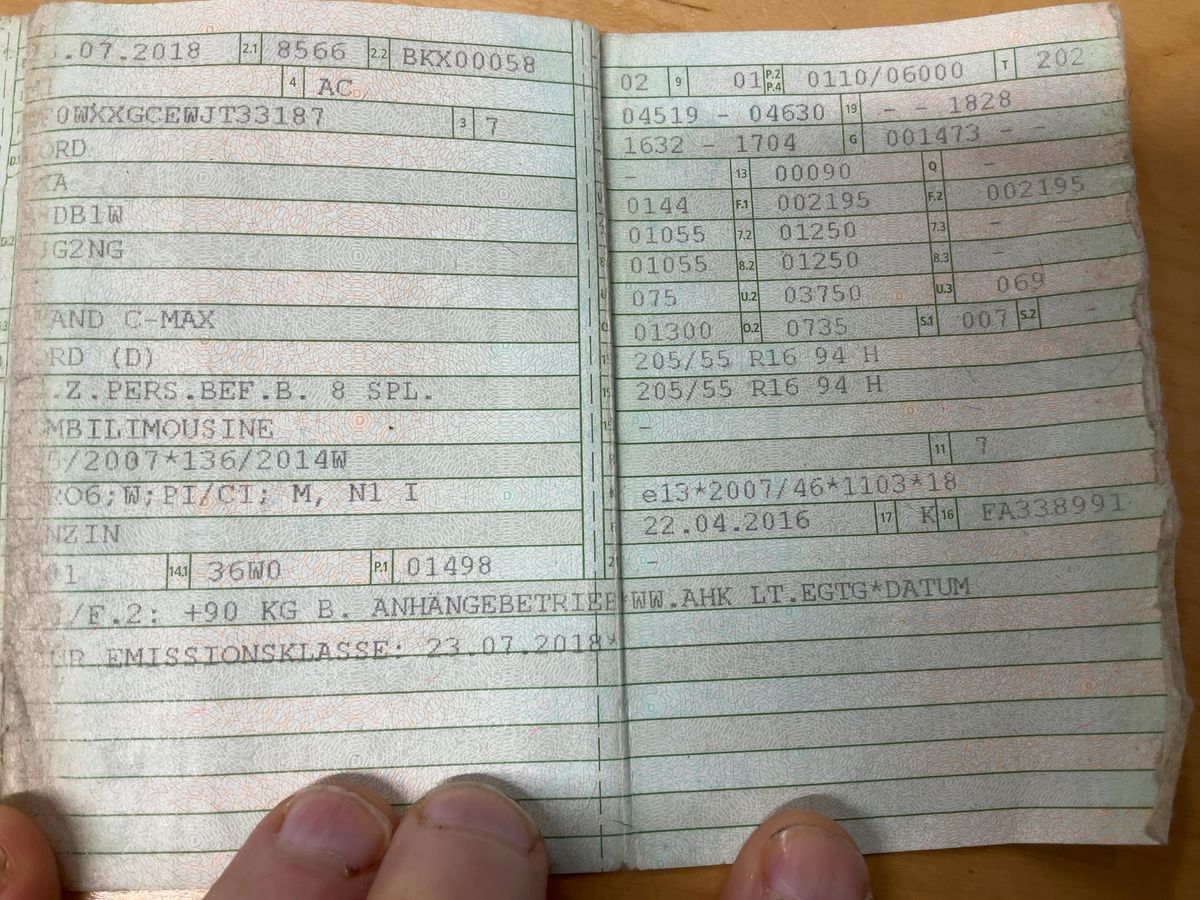 .07.2018 2.1 8566 2.2 BKX00058
4 AC
F0WXXGCEWJT33187 3 7
ORD
XA
DB1W
JG2NG
AND C-MAX
ORD (D)
.Z.PERS.BEF.B. 8 SPL.
MBILIMOUSINE
/2007*136/2014W
RO6;W;PI/CI; M, N1 I
NZIN
01 14.1 36W0 P.1 01498
/F.2: +90 KG B. ANHÄNGEBETRIEB*WW.AHK LT.EGTG*DATUM
UR EMISSIONSKLASSE: 23.07.2018*
02 9 01 P.2 P.4 0110/06000 T 202
04519 - 04630 19 - - 1828
1632 - 1704 G 001473 - -
- 13 00090 Q -
0144 F.1 002195 F.2 002195
01055 7.2 01250 7.3 -
01055 8.2 01250 8.3 -
075 U.2 03750 U.3 069
01300 O.2 0735 S.1 007 S.2 -
205/55 R16 94 H
205/55 R16 94 H
-
11 7
e13*2007/46*1103*18
22.04.2016 17 K 16 FA338991
-